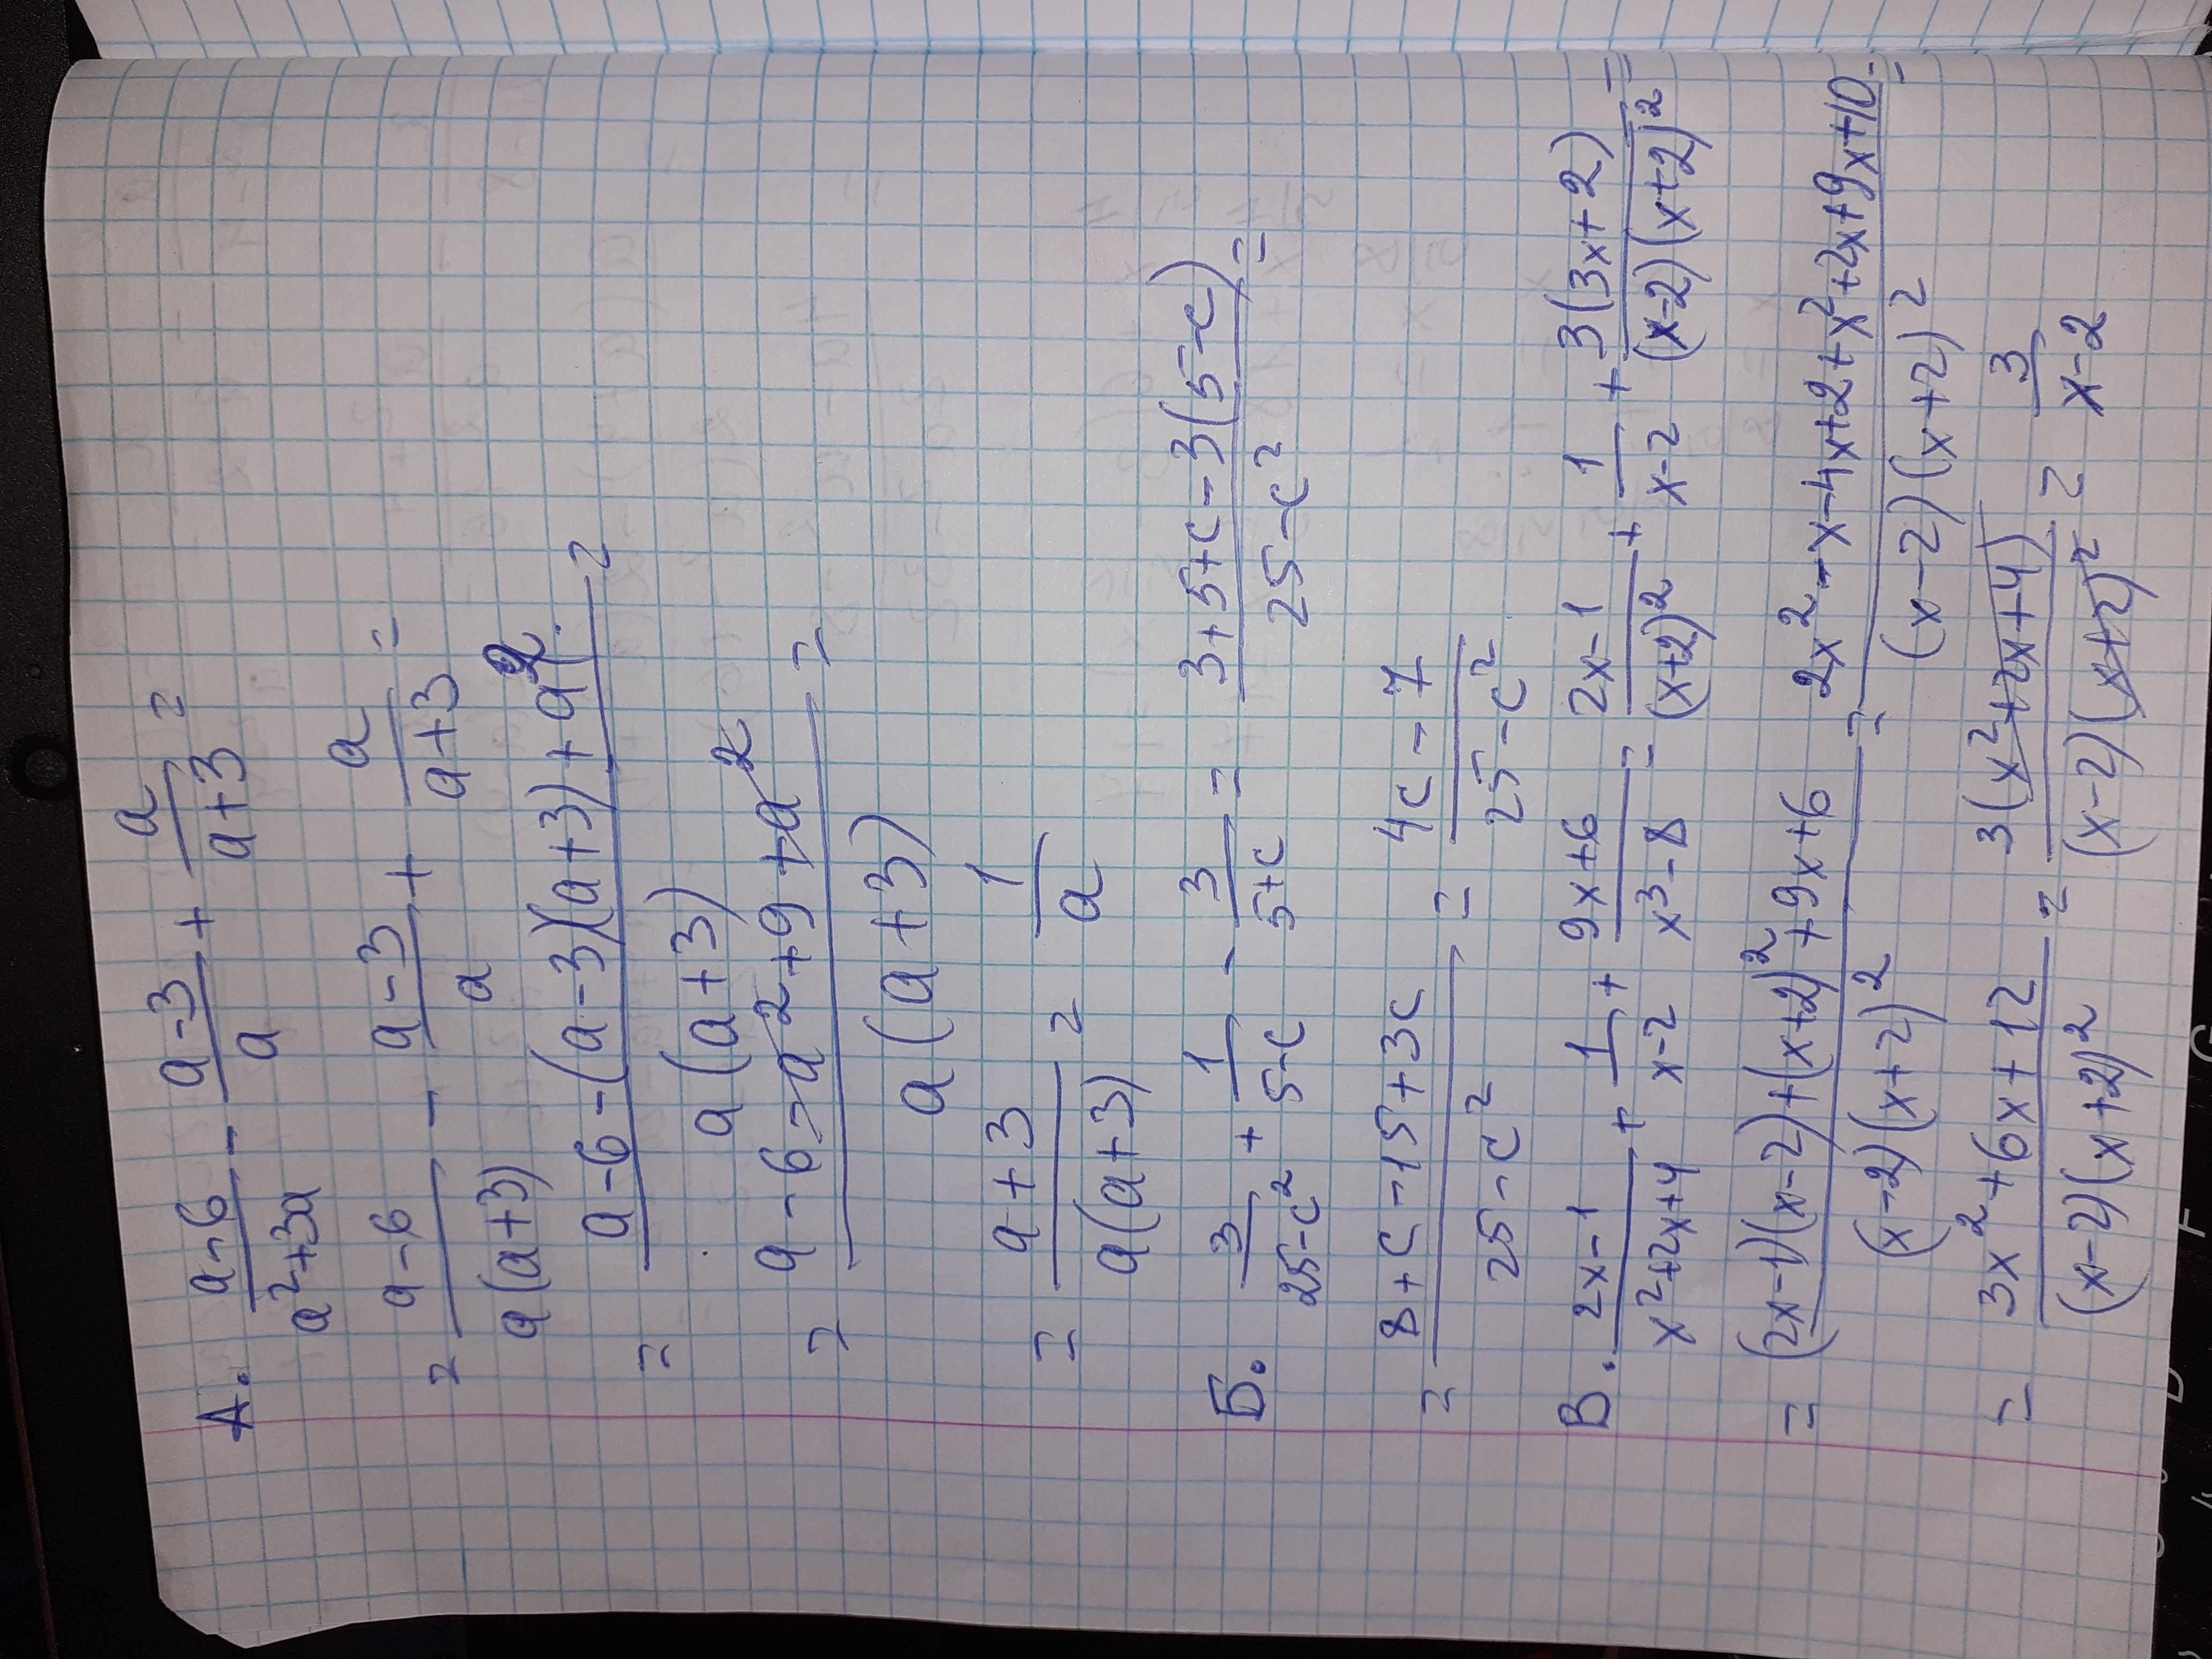 А. (a-6)/(a²+3a) - (a-3)/a + a/(a+3) =
= (a-6)/(a(a+3)) - (a-3)/a + a/(a+3) =
= (a-6-(a-3)(a+3)+a²)/(a(a+3)) =
= (a-6-a²+9+a²)/(a(a+3)) =
= (a+3)/(a(a+3)) = 1/a
Б. 3/(25-c²) + 1/(5-c) - 3/(5+c) = (3+5+c-3(5-c))/(25-c²) =
= (8+c-15+3c)/(25-c²) = (4c-7)/(25-c²)
В. (2x-1)/(x²+2x+4) + 1/(x-2) + (9x+6)/(x³-8) = (2x-1)/(x+2)² + 1/(x-2) + 3(3x+2)/((x-2)(x+2)²) =
= ((2x-1)(x-2)+(x+2)²+9x+6)/((x-2)(x+2)²) = (2x²-x-4x+2+x²+2x+9x+10)/((x-2)(x+2)²) =
= (3x²+6x+12)/((x-2)(x+2)²) = 3(x²+2x+4)/((x-2)(x+2)²) = 3/(x-2)